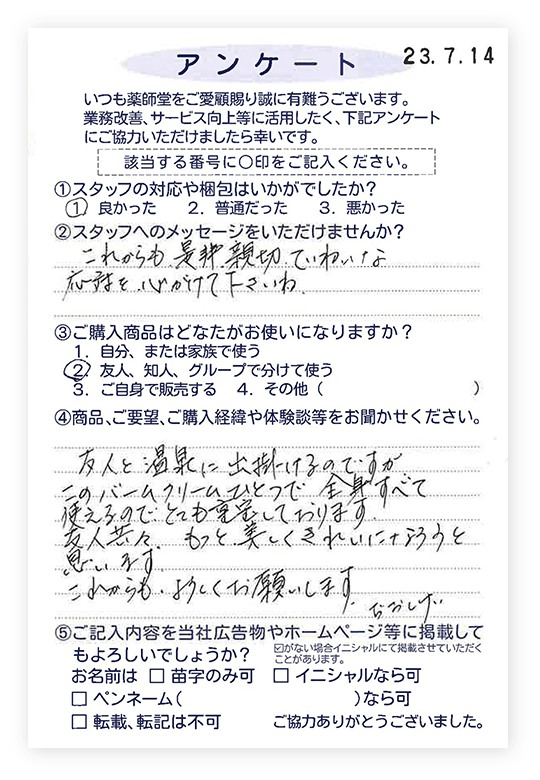 アンケート
23.7.14
いつも薬師堂をご愛顧賜り誠に有難うございます。
業務改善、サービス向上等に活用したく、下記アンケート
にご協力いただけましたら幸いです。
該当する番号に〇印をご記入ください。
①スタッフの対応や梱包はいかがでしたか?
1. 良かった 2. 普通だった 3. 悪かった
②スタッフへのメッセージをいただけませんか?
これからも是非親切、ていねいな
応対を心がけて下さいね
③ご購入商品はどなたがお使いになりますか?
1. 自分、または家族で使う
2. 友人、知人、グループで分けて使う
3. ご自身で販売する 4. その他( )
④商品、ご要望、ご購入経緯や体験談等をお聞かせください。
友人と温泉に出掛けるのですが
このバームクリームひとつで全身すべて
使えるのでとても重宝しております。
友人共々、もっと美しくきれいになろうと
思います。
これからも、よろしくお願いします。
⑤ご記入内容を当社広告物やホームページ等に掲載して
もよろしいでしょうか?
☑がない場合イニシャルにて掲載させていただく
ことがあります。
お名前は □ 苗字のみ可 □ イニシャルなら可
□ ペンネーム( )なら可
□ 転載、転記は不可 ご協力ありがとうございました。